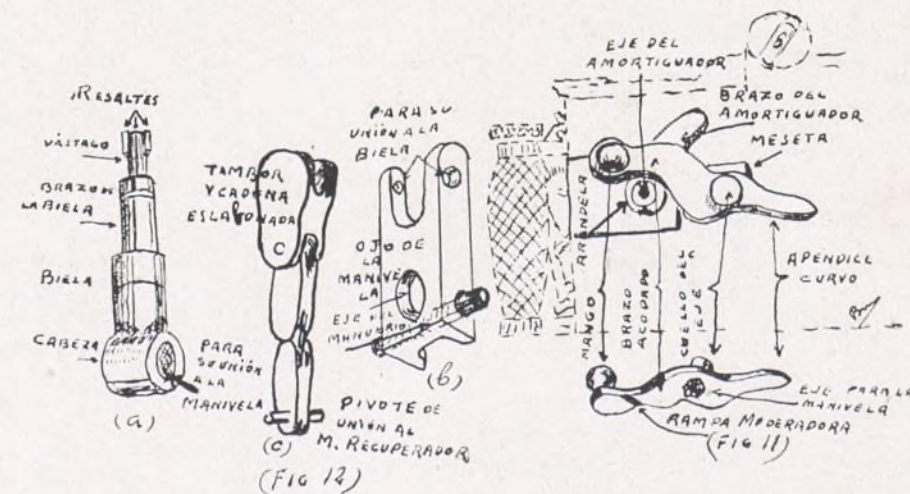 RESALTES
VÁSTAGO
BRAZO DE
LA BIELA
BIELA
CABEZA
PARA
SU UNIÓN
A LA
MANIVELA
(a)
TAMBOR
Y CADENA
ESLABONADA
C
(C)
PIVOTE DE
UNIÓN AL
M. RECUPERADOR
(FIG 12)
PARA SU
UNIÓN A LA
BIELA
OJO DE
LA
MANIVE
LA
EJE DEL
MANUBRIO
(b)
EJE DEL
AMORTIGUADOR
S
BRAZO DEL
AMORTIGUADOR
MESETA
ARANDELA
MANGO
BRAZO
ACODADO
CUELLO DEL
EJE
APENDICE
CURVO
EJE PARA LA
MANIVELA
RAMPA MODERADORA
(FIG 11)